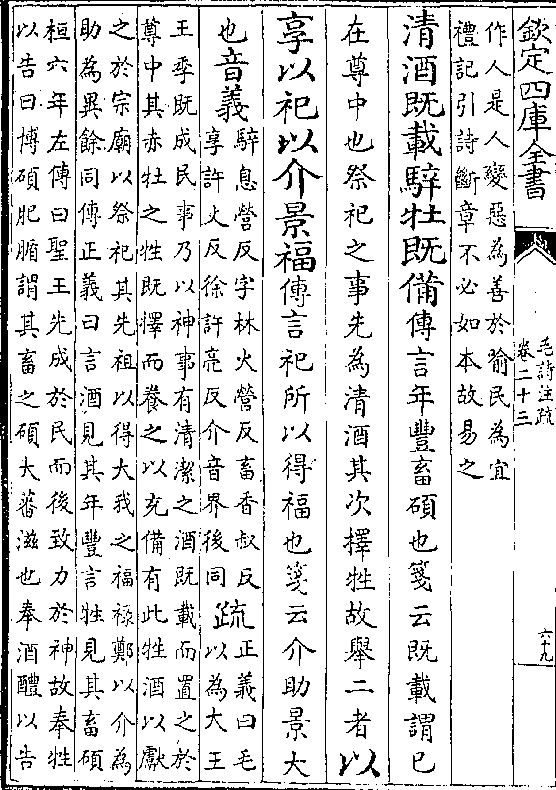 欽定四庫全書
毛詩注疏
卷二十三
六十九
作人是人變惡為善於喻民為宜
禮記引詩斷章不必如本故易之
清酒既載騂牡既備傳言年豐畜碩也箋云既載謂已
在尊中也祭祀之事先為清酒其次擇牲故舉二者以
享以祀以介景福傳言祀所以得福也箋云介助景大
也音義
騂息營反字林火營反畜香叔反
享許丈反徐許亮反介音界後同
疏
正義曰毛
以為大王
王季既成民事乃以神事有清潔之酒既載而置之於
尊中其赤牡之牲既擇而養之以充備有此牲酒以獻
之於宗廟以祭祀其先祖以得大我之福祿鄭以介為
助為異餘同傳正義曰言酒見其年豐言牲見其畜碩
桓六年左傳曰聖王先成於民而後致力於神故奉牲
以告曰博碩肥腯謂其畜之碩大蕃滋也奉酒醴以告